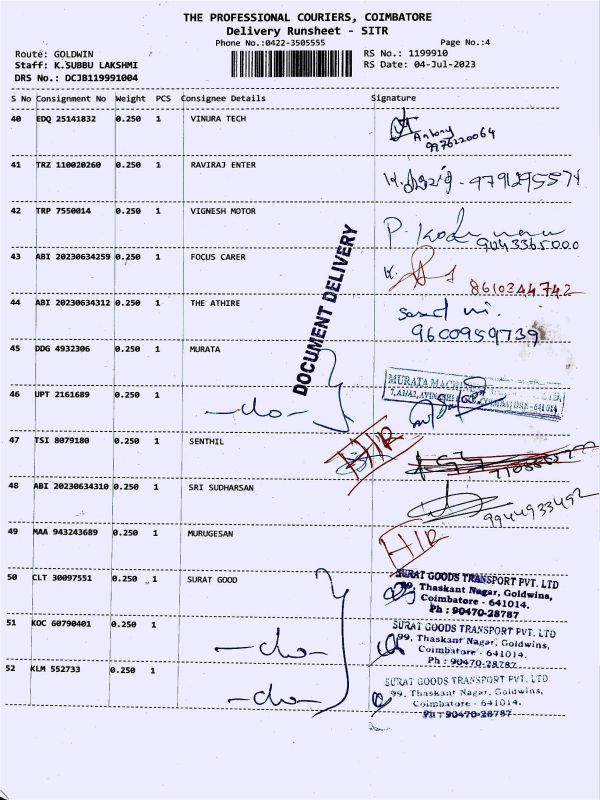 THE PROFESSIONAL COURIERS, COIMBATORE
Delivery Runsheet - SITR
Phone No.:0422-3505555 Page No.:4
Route: GOLDWIN RS No.: 1199910
Staff: K.SUBBU LAKSHMI RS Date: 04-Jul-2023
DRS No.: DCJB119991004
S No Consignment No Weight PCS Consignee Details Signature
40 EDQ 25141832 0.250 1 VINURA TECH
Antony
9976220064
41 TRZ 110020260 0.250 1 RAVIRAJ ENTER
9791295574
42 TRP 7550014 0.250 1 VIGNESH MOTOR
9043365000
43 ABI 20230634259 0.250 1 FOCUS CARER
8610344742
44 ABI 20230634312 0.250 1 THE ATHIRE
9600959739
DOCUMENT DELIVERY
45 DDG 4932306 0.250 1 MURATA
MURATA MACHI
46 UPT 2161689 0.250 1 -do-
COIMBATORE - 641 014
47 TSI 8079180 0.250 1 SENTHIL
H/R
48 ABI 20230634310 0.250 1 SRI SUDHARSAN
9944933492
49 MAA 943243689 0.250 1 MURUGESAN
H/R
50 CLT 30097551 0.250 1 SURAT GOOD
SURAT GOODS TRANSPORT PVT. LTD
99, Thaskant Nagar, Goldwins,
Coimbatore - 641014.
Ph : 90470-28787
51 KOC 60790401 0.250 1 -do-
SURAT GOODS TRANSPORT PVT. LTD
99, Thaskant Nagar, Goldwins,
Coimbatore - 641014.
Ph : 90470-28787
52 KLM 552733 0.250 1 -do-
SURAT GOODS TRANSPORT PVT. LTD
99, Thaskant Nagar, Goldwins,
Coimbatore - 641014.
Ph : 90470-28787